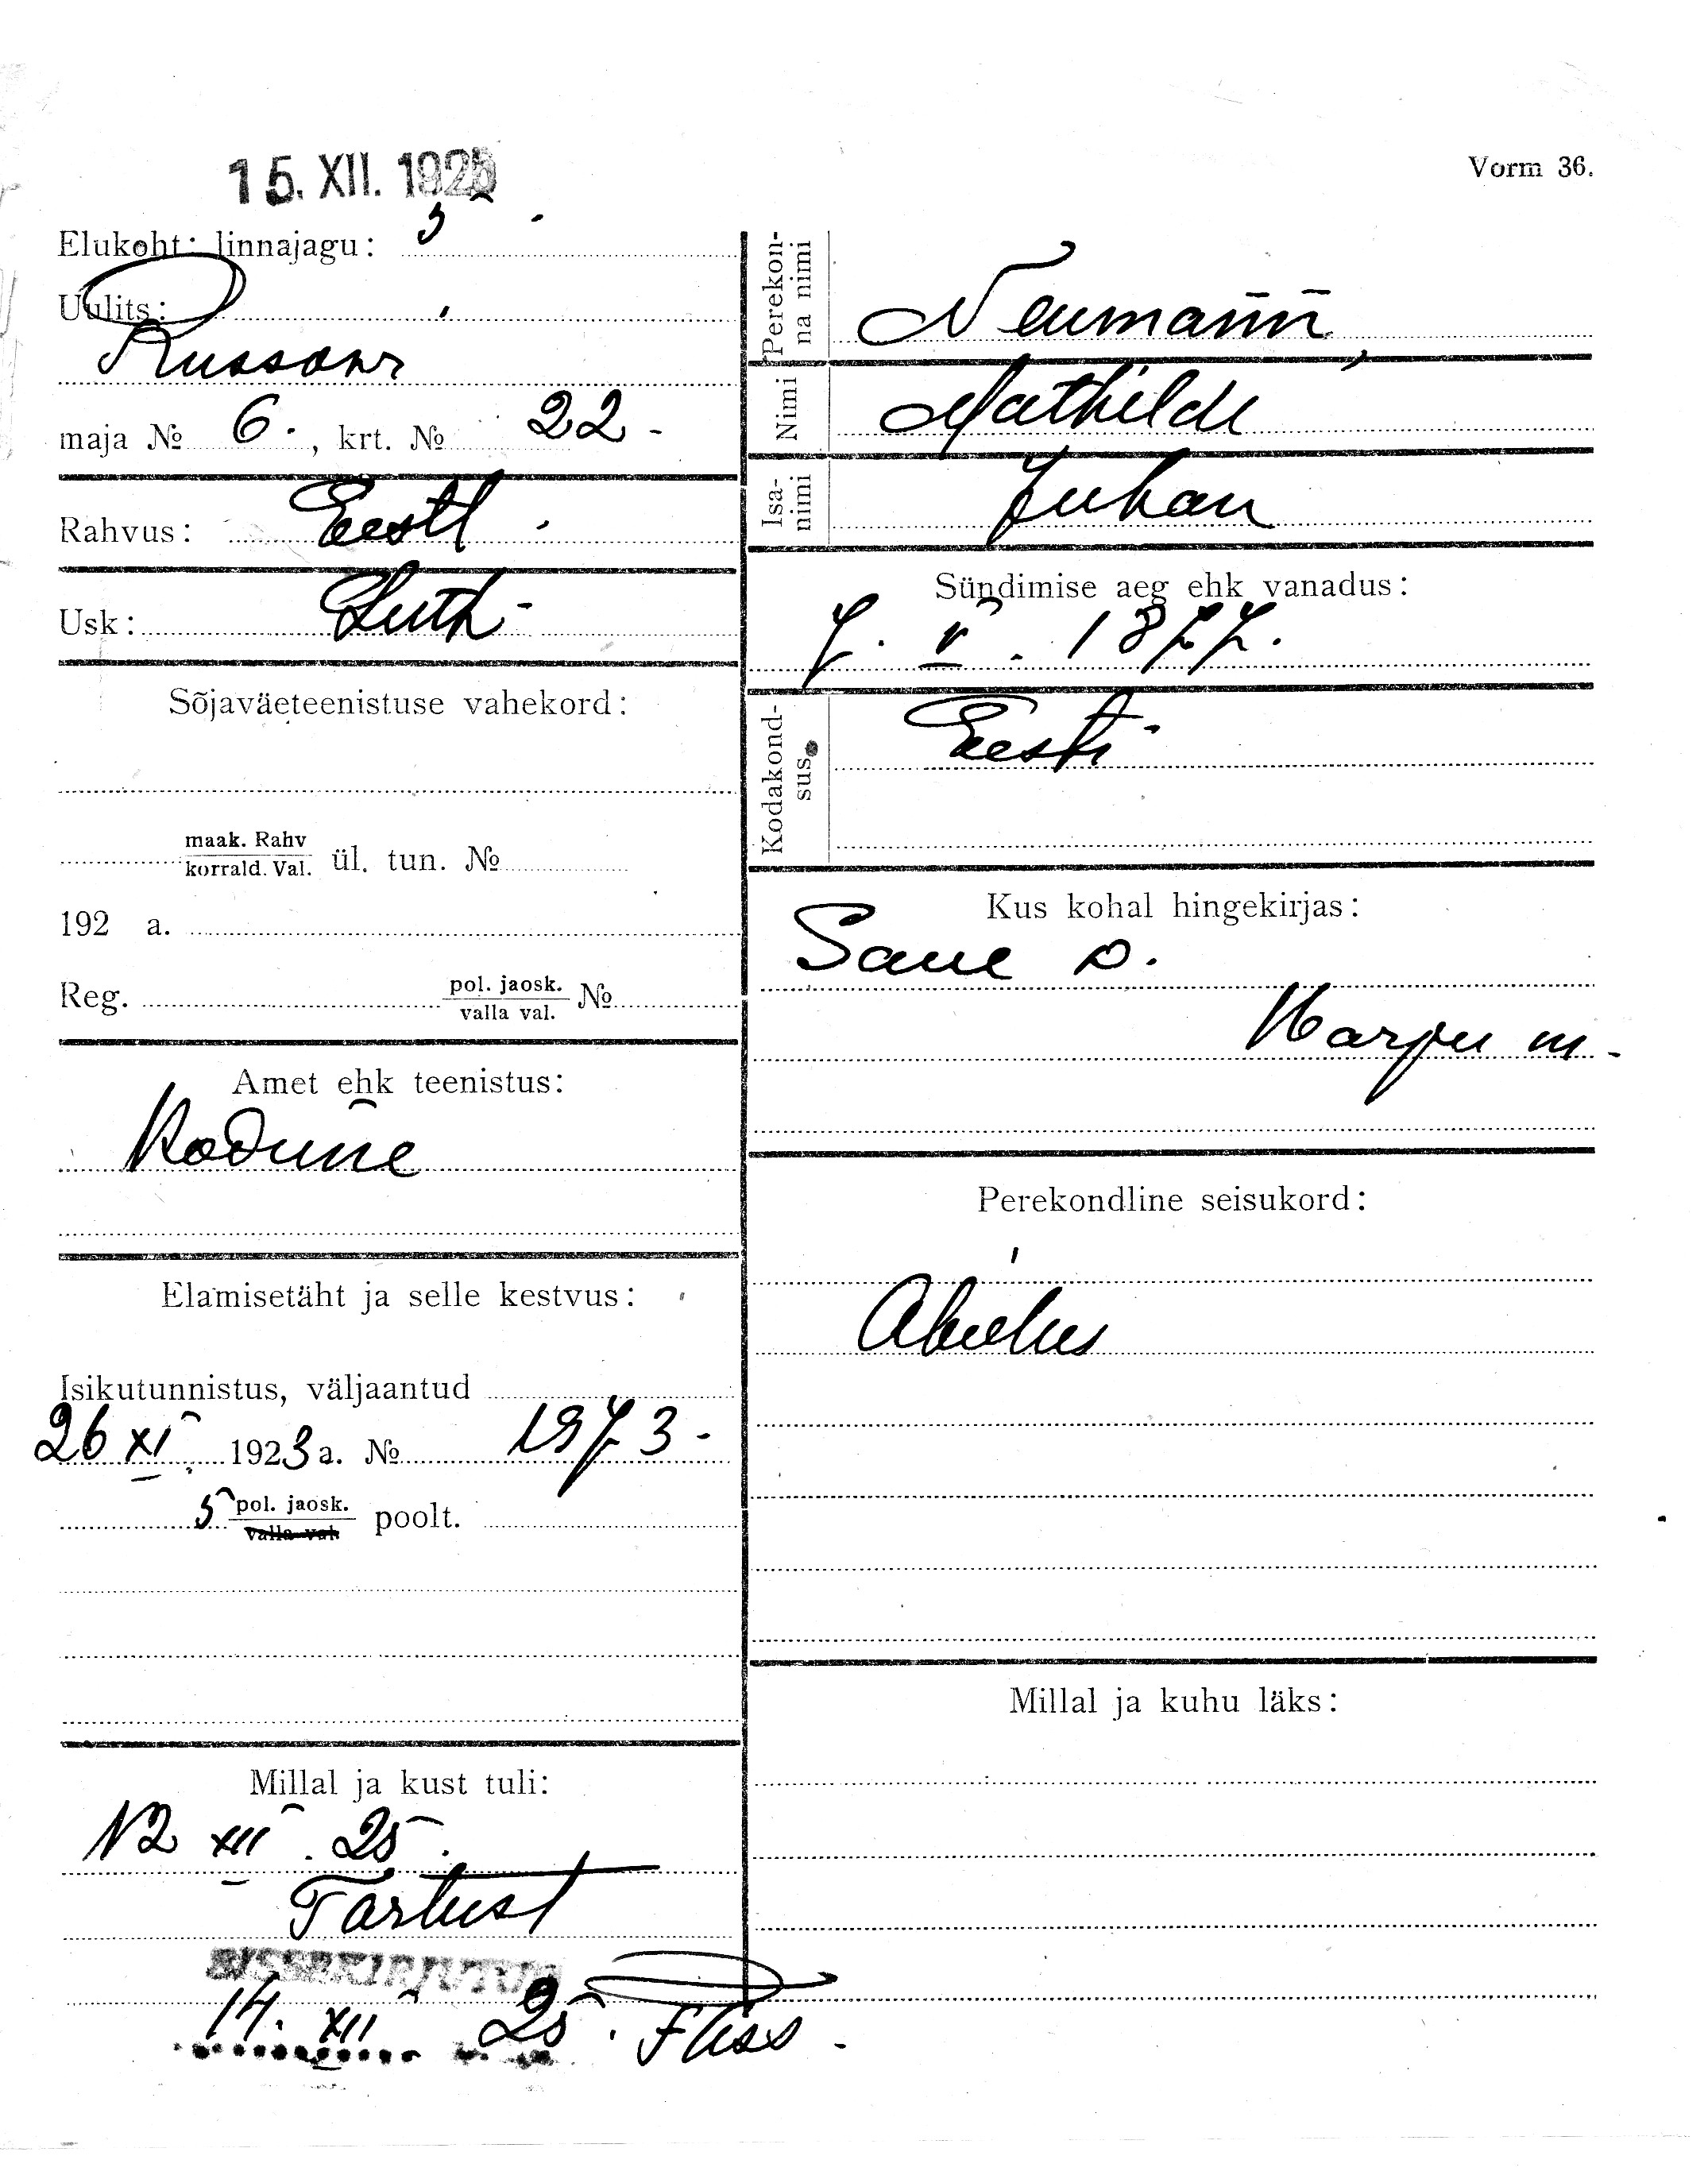 15. XII. 1925
Vorm 36.
Elukoht: linnajagu: 5
Uulits:
maja № 6., krt. № 22-
Rahvus: Eesti
Usk: Luth-
Sõjaväeteenistuse vahekord:
maak. Rahv
korrald. Val. ül. tun. №
192 a.
Reg. pol. jaosk. №
valla val.
Amet ehk teenistus:
Kodune
Elamisetäht ja selle kestvus:
Isikutunnistus, väljaantud
26 XI 1923 a. № 1973-
5 pol. jaosk. poolt.
valla val.
Millal ja kust tuli:
12 XII. 25.
Tartust
SISSEKIRJUTUD
14. XII 25.
Perekon-
na nimi Neumann,
Nimi Mathilde
Isa-
nimi Juhan
Sündimise aeg ehk vanadus:
7. V. 1877.
Kodakond-
sus Eesti
Kus kohal hingekirjas:
Saue v.
Harju m.
Perekondline seisukord:
Abielus
Millal ja kuhu läks: